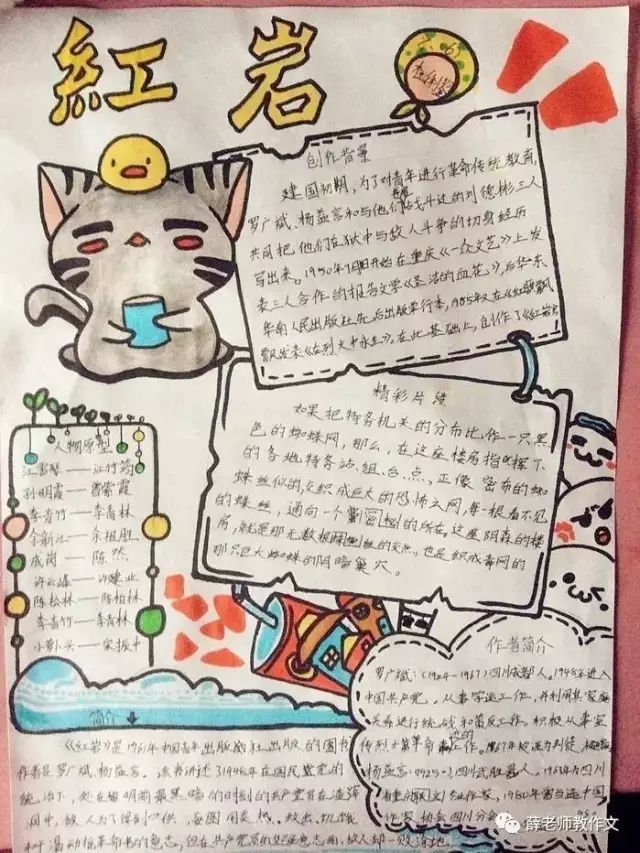 紅岩
六.(6)
创作背景
建国初期,为了对青年进行革命传统教育,
罗广斌、杨益言和与他们战斗过的刘德彬三人
共同把他们在狱中与敌人斗争的切身经历
写出来。1950年7月1日开始在重庆《一众文艺》上发
表三人合作的报告文学《圣洁的血花》,后华东
华南人民出版社先后出版单行本,1985年又在《红旗飘
飘发表《在烈火中永生》,在此基础上,创作了《红岩》
精彩片段
如果把特务机关的分布比作一只黑
色的蜘蛛网,那么,在这座楼房指挥下
的各地特务站、组、台、点,正像密布的蜘
蛛丝似的,交织成巨大的恐怖之网,每一根看不见
的蛛丝,通向一个秘密的所在。这座阴森的楼
房,就是那无数蛛丝的交点,也是织成毒网的
那只巨大蜘蛛的阴暗巢穴。
人物原型
江雪琴——江竹筠
孙明霞——曾紫霞
李青竹——李青林
余新江——余祖胜
成岗——陈然
许云峰——许建业
陈松林——陈柏林
李青竹——李青林
小萝卜头——宋振中
作者简介
罗广斌:(1924-1967)四川成都人。1948年进入
中国共产党。从事学运工作,并利用其家庭
关系进行统战和策反工作。积极从事宣
传烈士革命的工作。1967年被诬为叛徒,被
杨益言:(1925-),四川武胜县人。1963年为四川
作家,1980年当选中国
作家协会四川分
简介
《红岩》是1961年中国青年出版社出版的图书
作者是罗广斌、杨益言。该书讲述了1948年在国民党的
统治下,处在黎明前最黑暗的时刻的共产党员在渣滓
洞中,敌人为了得到口供,
革命者的意志,但在共产党员的坚强意志面前,敌人却一败涂地。
薛老师教作文